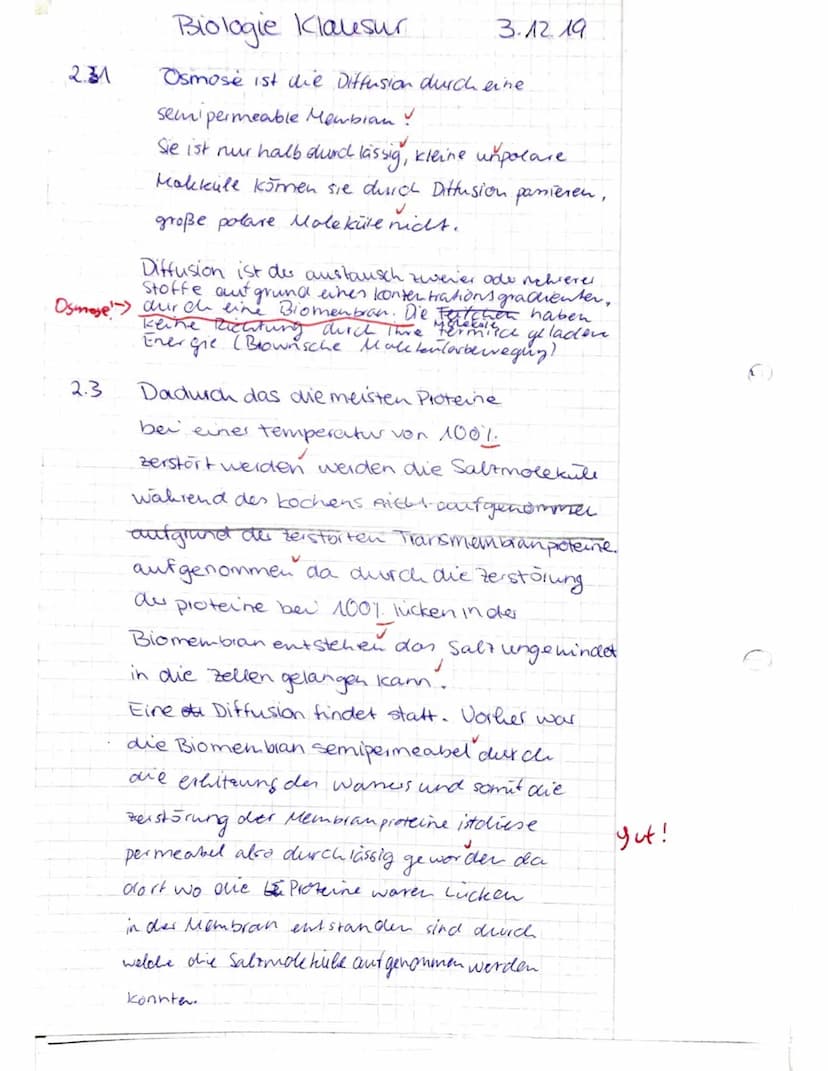 Biologie Klausur 3.12.19
2.1 Osmose ist die Diffusion durch eine
semipermeable Membran.
Sie ist nur halb durchlässig, kleine unpolare
Moleküle können sie durch Diffusion passieren,
große polare Moleküle nicht.
Diffusion ist der austausch zweier oder mehrerer
Stoffe aufgrund eines Konzentrationsgradienten,
Osmose! → durch eine Biomembran. Die Teilchen haben
Moleküle
keine Richtung durch ihre termisch geladene
Energie (Brownsche Molekularbewegung)
2.3 Dadurch das die meisten Proteine
bei einer temperatur von 100%
zerstört werden werden die Salzmoleküle
während des kochens nicht aufgenommen
aufgrund der zerstörten Transmembranproteine.
aufgenommen da durch die Zerstörung
der proteine bei 100% lücken in der
Biomembran entstehen das Salz ungehindet
in die Zellen gelangen kann.
Eine Diffusion findet statt. Vorher war
die Biomembran semipermeabel durch
die erhitzung des Wassers und somit die
zerstörung der Membranproteine ist diese
permeabel also durchlässig geworden da
gut!
dort wo die Proteine waren Lücken
in der Membran entstanden sind durch
welche die Salzmoleküle aufgenommen werden
konnten.